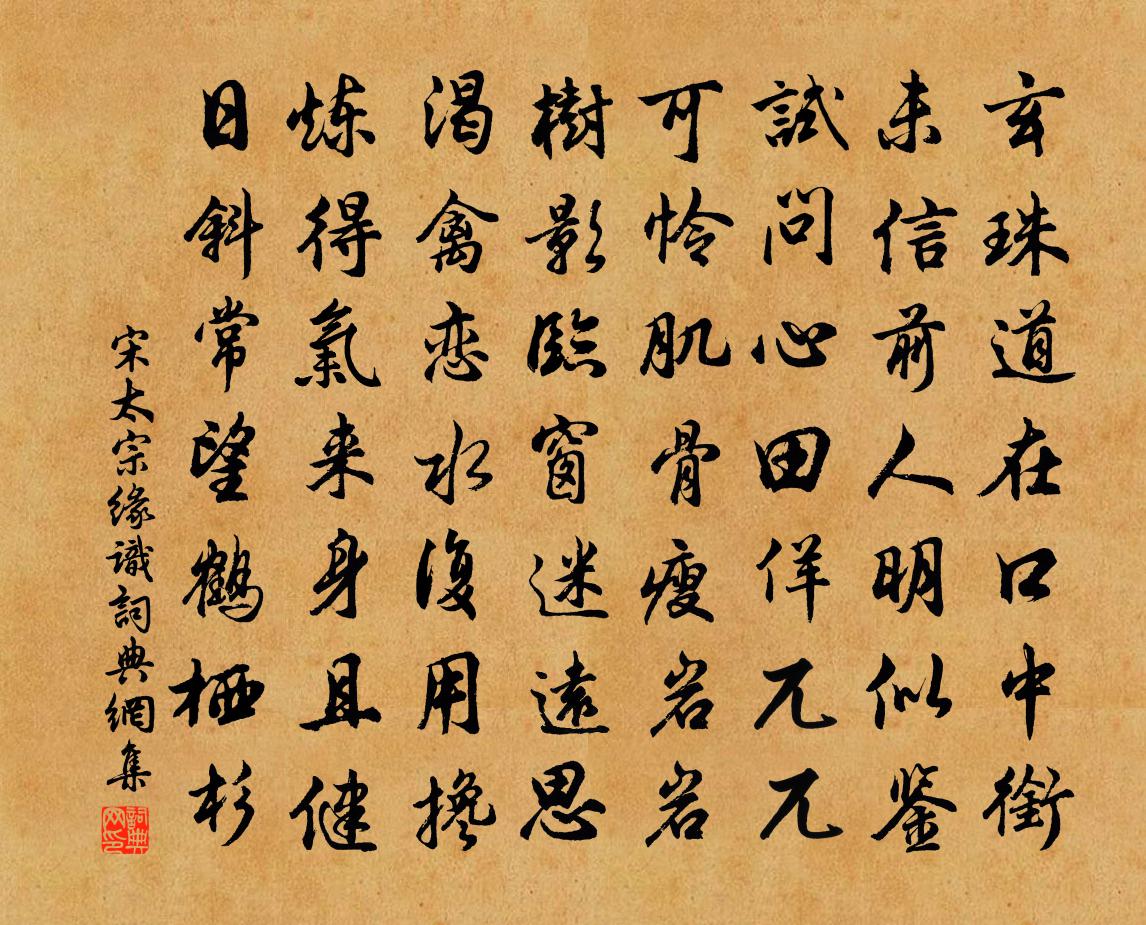 玄珠道在口中銜
未信前人明似鉴
試問心田佯兀兀
可怜肌骨瘦岩岩
樹影臨窗迷遠思
渴禽恋水復用搀
炼得氣来身且健
日斜常望鶴栖杉
宋太宗緣識詞典網集
詞典网印